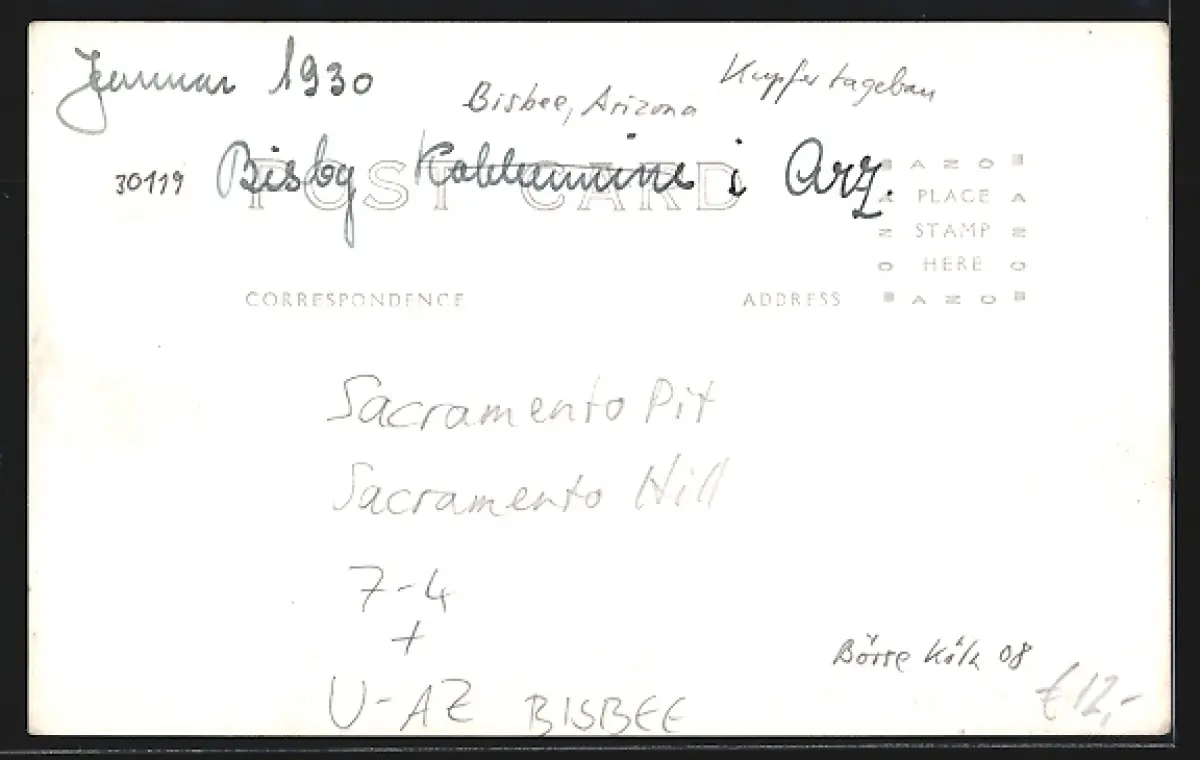 Januar 1930
Bisbee, Arizona
Kupfertagebau
30119
Bisby Kohlenmine i Arz.
POST CARD
AZO
PLACE
STAMP
HERE
AZO
CORRESPONDENCE
ADDRESS
Sacramento Pit
Sacramento Hill
7-4
+
U-AZ BISBEE
Börse Köln 08
€12,-